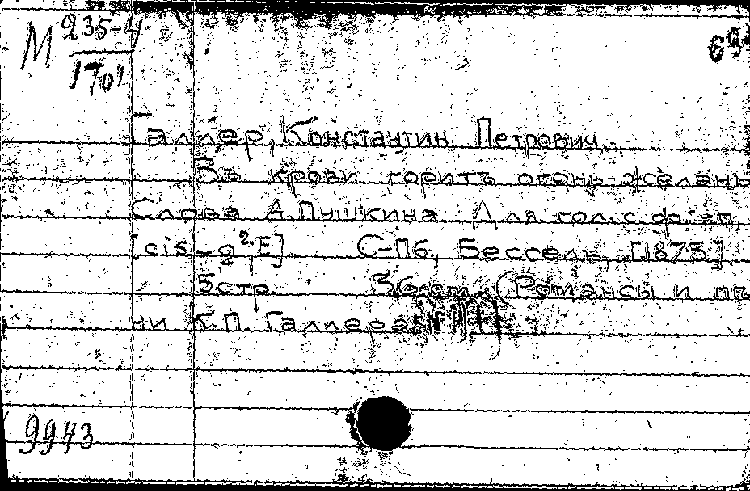 М 235-4
1701
69
Галлер, Константин Петрович.
Въ крови горитъ огонь желань
Слова А. Пушкина. Для гол. с ф.-п.
[cis-g², E] С-Пб, Бессель, [1873]
5 стр. (Романсы и пѣ
ни К. П. Галлера
9943